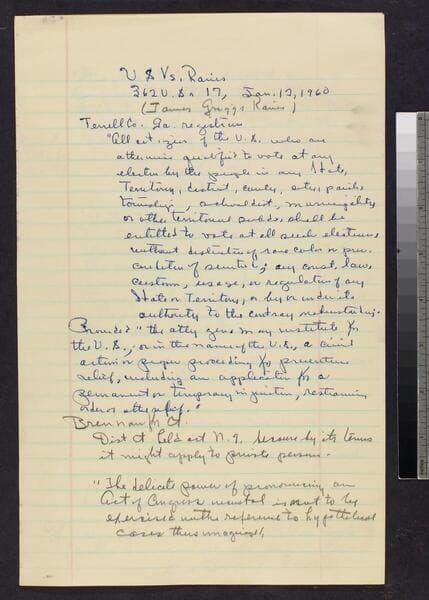 U S Vs. Raines
362 U.S. 17, Jan. 12, 1960
(James Griggs Raines)
Terrell Co. Ga. registrars
"All citizens of the U.S. who are
otherwise qualified to vote at any
election by the people in any State,
Territory, district, county, city, parish
township, school dist, municipality
or other territorial subdiv. shall be
entitled to vote at all such elections
without distinction of race color or prev.
condition of servitude; any const, law,
custom, usage, or regulation of any
State or Territory, or by or under its
authority to the contrary notwithstanding.
Provides "the atty gen may institute for
the U.S., or in the name of the U.S., a civil
action or proper proceeding for preventive
relief, including an application for a
permanent or temporary injunction, restraining
order or other relief."
Brennan for Ct.
Dist Ct held act N.G. because by its terms
it might apply to private persons.
"The delicate power of pronouncing an
Act of Congress unconstal is not to be
exercised with reference to hypothetical
cases thus imagined"